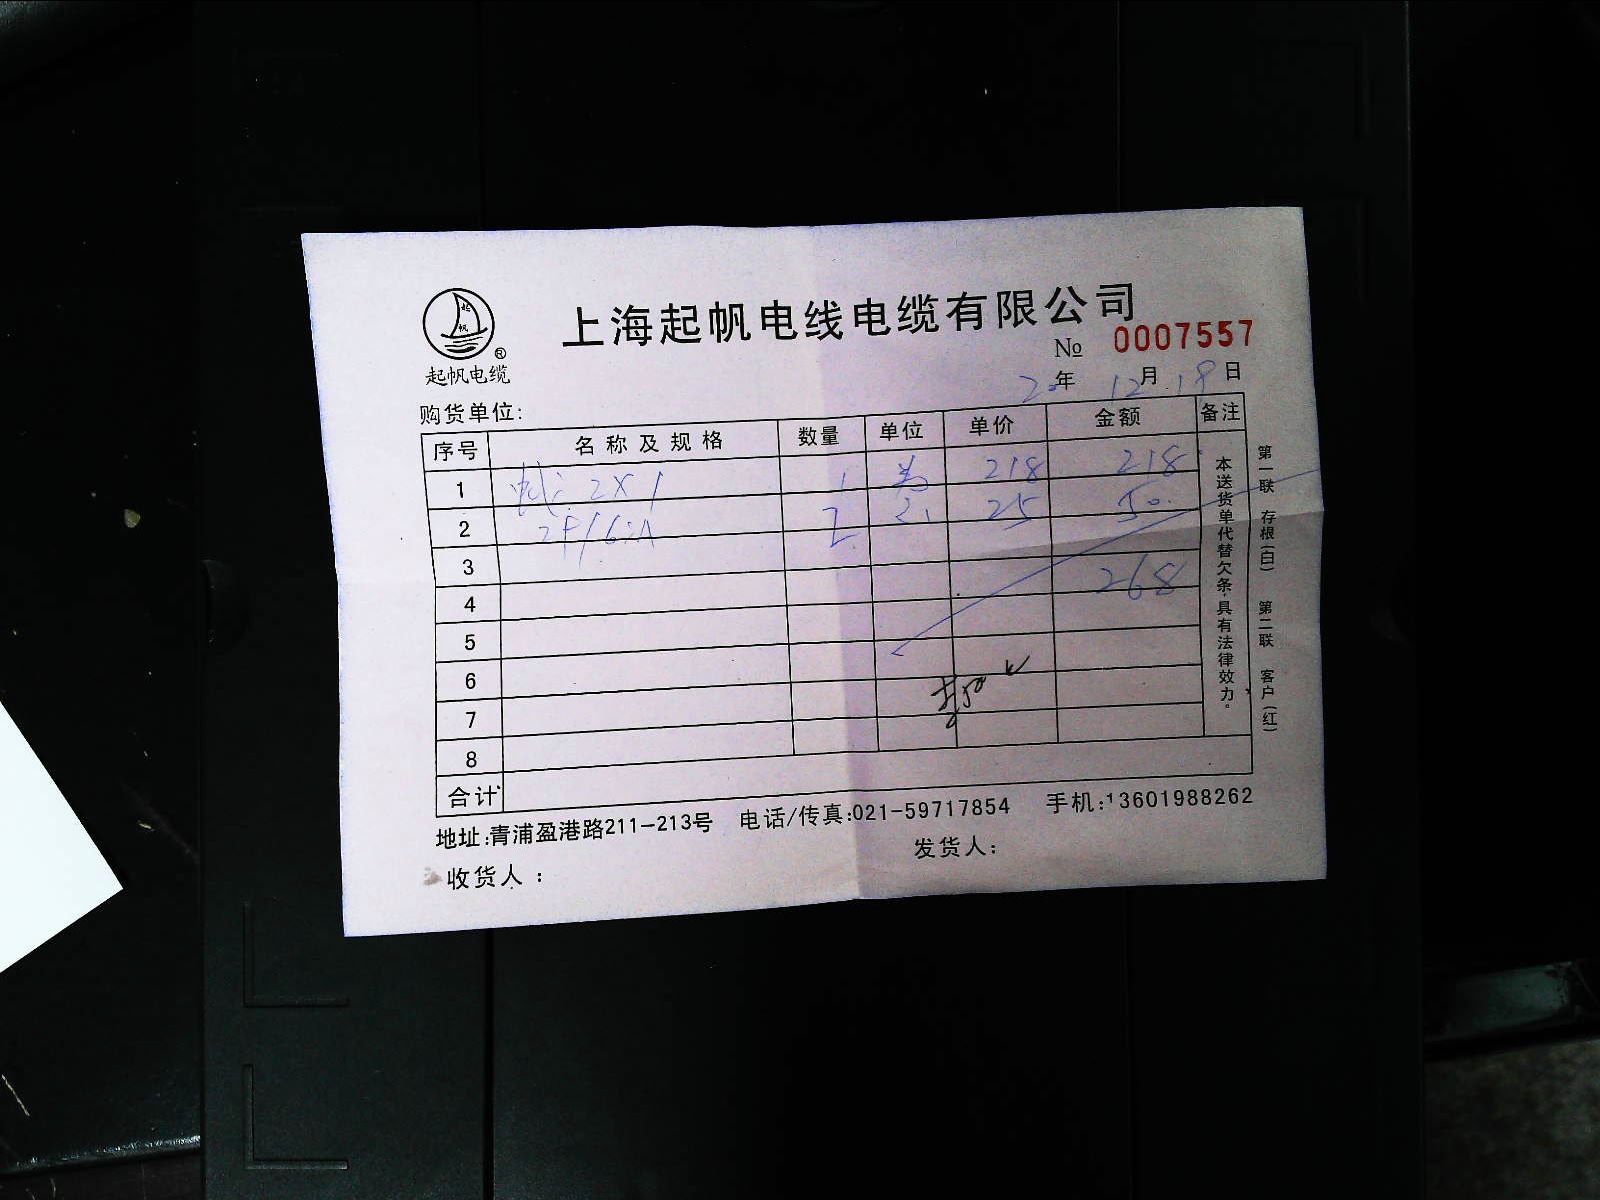 起帆
®
起帆电缆
上海起帆电线电缆有限公司
№ 0007557
20年 12月 19日
购货单位:
序号 名称及规格 数量 单位 单价 金额 备注
1 2×1 1 218 218
2 2P/16A 2 25 50
3 268
4
5
6
7
8
合计
本送货单代替欠条,具有法律效力。
第一联 存根(白) 第二联 客户(红)
地址:青浦盈港路211-213号 电话/传真:021-59717854 手机:13601988262
收货人: 发货人: